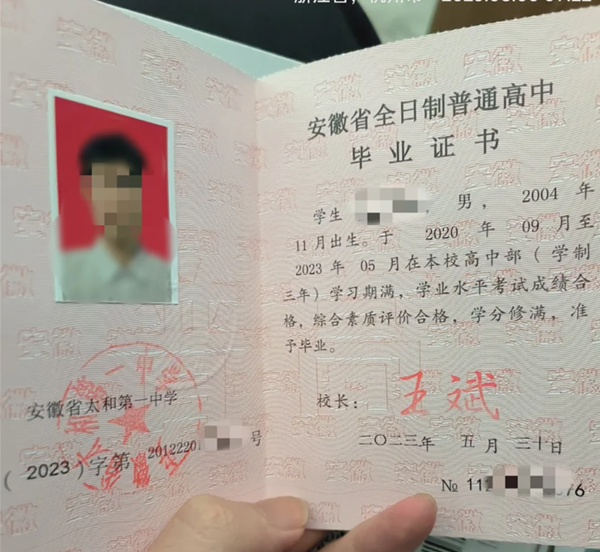 安徽省太和第一中学
（2023）字第 2012220 号
安徽省全日制普通高中
毕业证书
学生 男，2004 年
11 月出生。于 2020 年 09 月至
2023 年 05 月在本校高中部（学制
三年）学习期满，学业水平考试成绩合
格，综合素质评价合格，学分修满，准
予毕业。
校长：王斌
二〇二三年 五月 三十日
№ 11 76